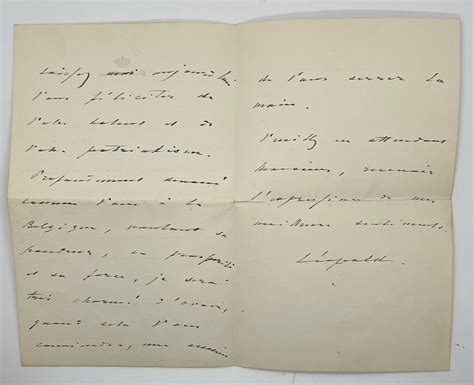 Laissez moi aujourd'hui
Vous féliciter de
Votre talent et de
Votre patriotisme.
Profondément dévoué
comme Vous à la
Belgique, voulant sa
grandeur, sa prospérité
et sa force, je serai
très charmé d'avoir,
quand cela Vous
conviendra, une occasion
de Vous serrer la
main.
Veuillez en attendant
Monsieur, recevoir
l'expression de mes
meilleurs sentiments.
Léopold.